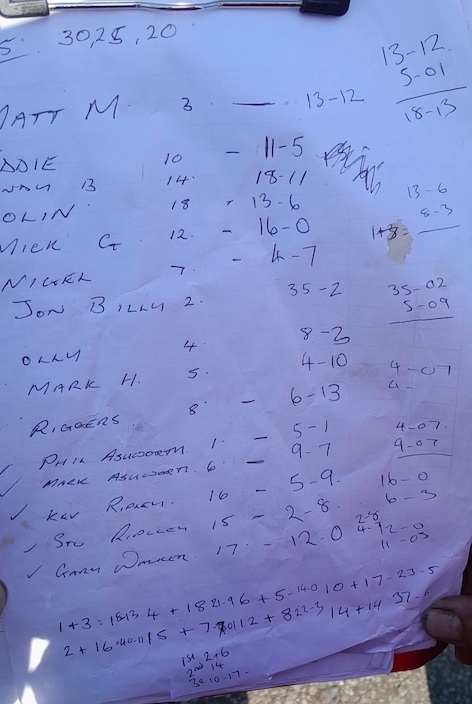 5. 30, 25, 20
13-12
5-01
18-13
MATT M. 3 — 13-12
DDIE 10 - 11-5
B 14. 18-11
OLIN 18 - 13-6
13-6
8-3
MICK G 12. - 16-0
1+3
NIGEL 7. - 4-7
JON BILLY 2. 35-2
35-02
5-09
OLLY 4. 8-3
MARK H. 5. 4-10
4-07
4-
RIGGERS. 8. - 6-13
✓ PHIL ASHWORTH. 1. - 5-1
4-07
✓ MARK ASHWORTH. 6 - 9-7
9-07
✓ KEV RIPLEY. 16 - 5-9.
16-0
6-3
✓ STU RIPLEY 15 - 2-8.
2-8
✓ GARY WALKER. 17. - 12-0
12-0
11-05
1+3=18-13 4+18 21-9 6+5=14-0 10+17-23-5
2+16=40-11 15+7 12+8 22-3 14+14 37-
1st 2+6
2nd 14
3rd 10-17-